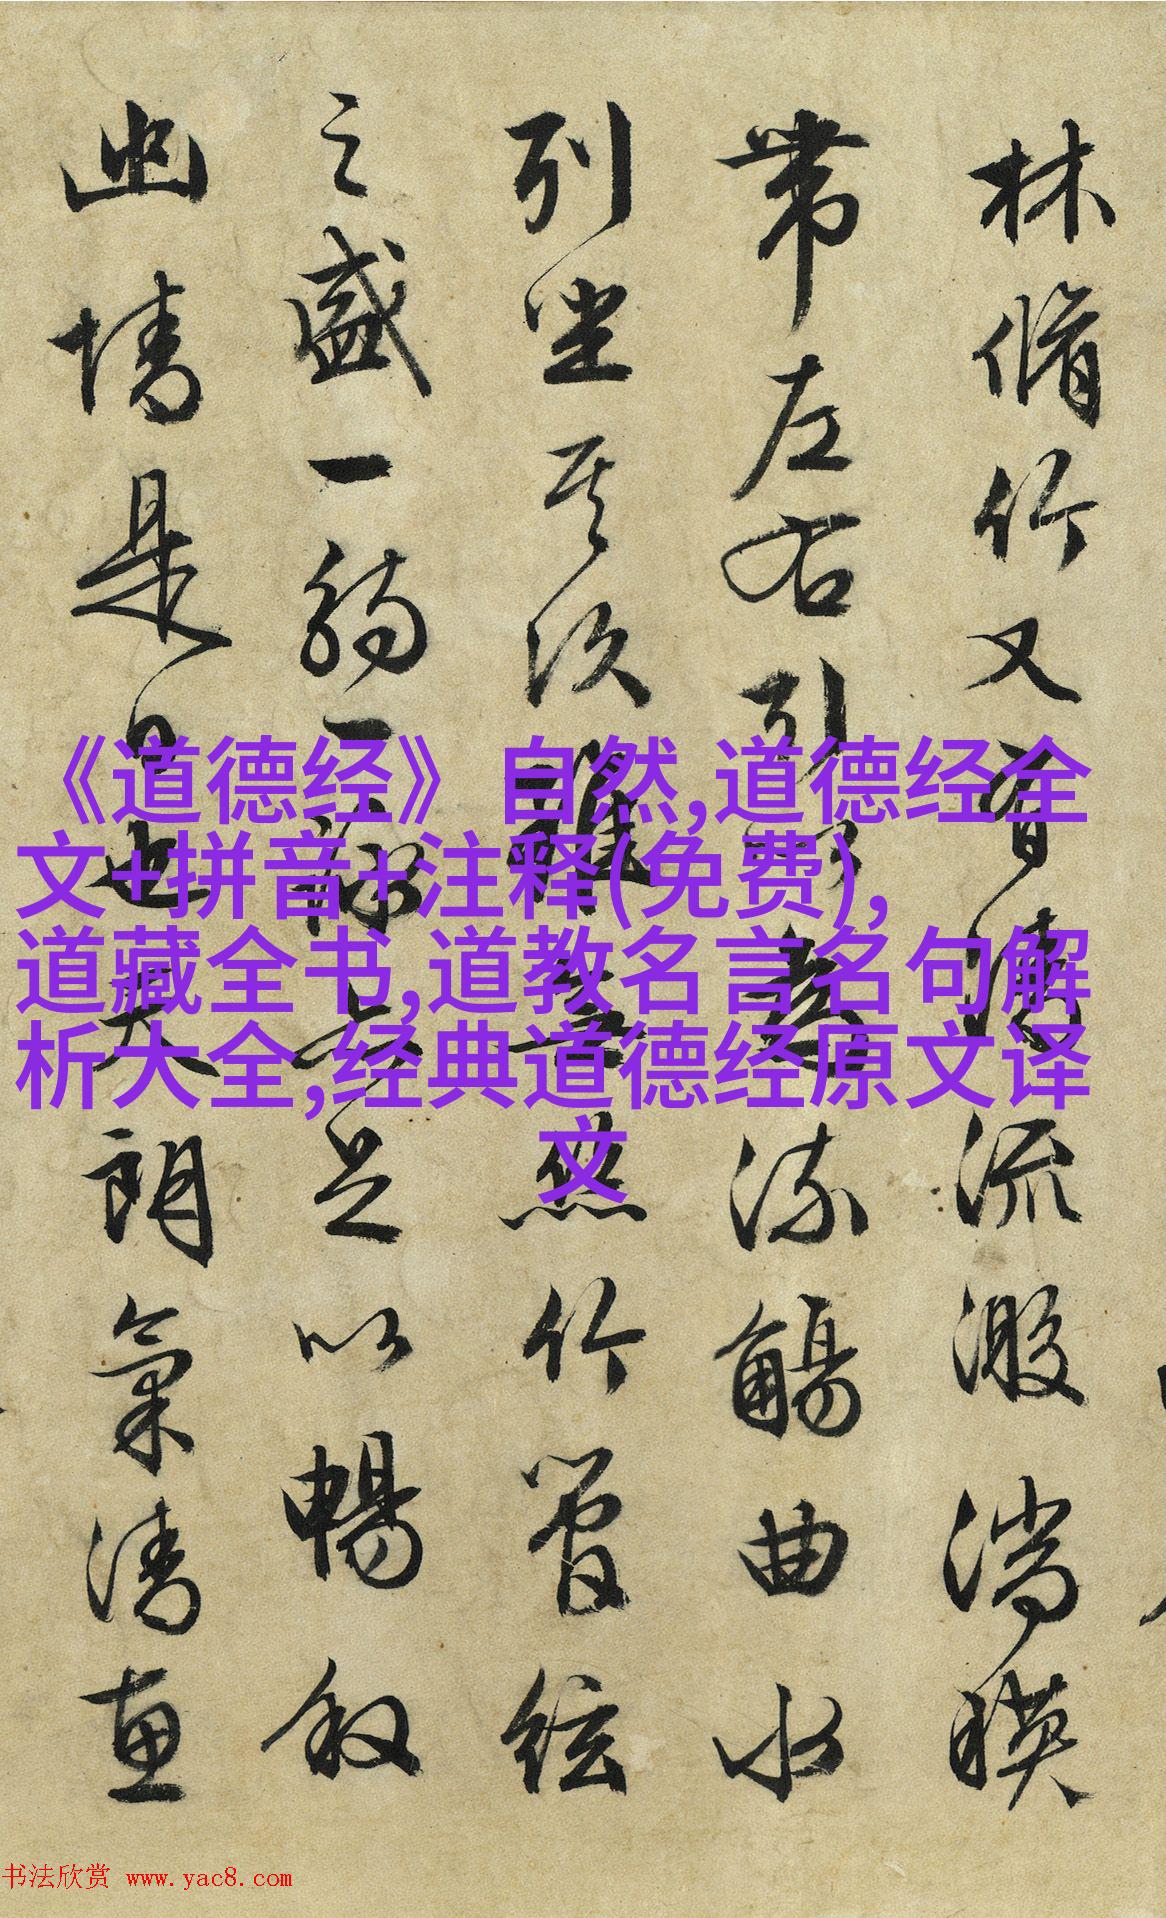 林脩竹又有清流激湍暎
帶左右引以為流觴曲水
列坐其次雖無絲竹管絃
之盛一觴一詠亦足以暢叙
幽情是日也天朗氣清惠
《道德经》自然,道德经全
文+拼音+注释(免费),
道藏全书,道教名言名句解
析大全,经典道德经原文译
文
书法欣赏 www.yac8.com